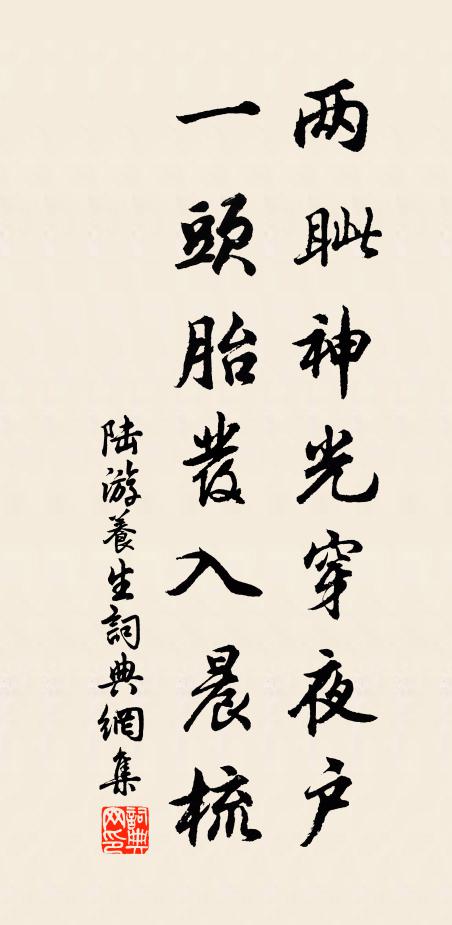 两眦神光穿夜户
一頭胎發入晨梳
陆游養生詞典網集
詞典
网印